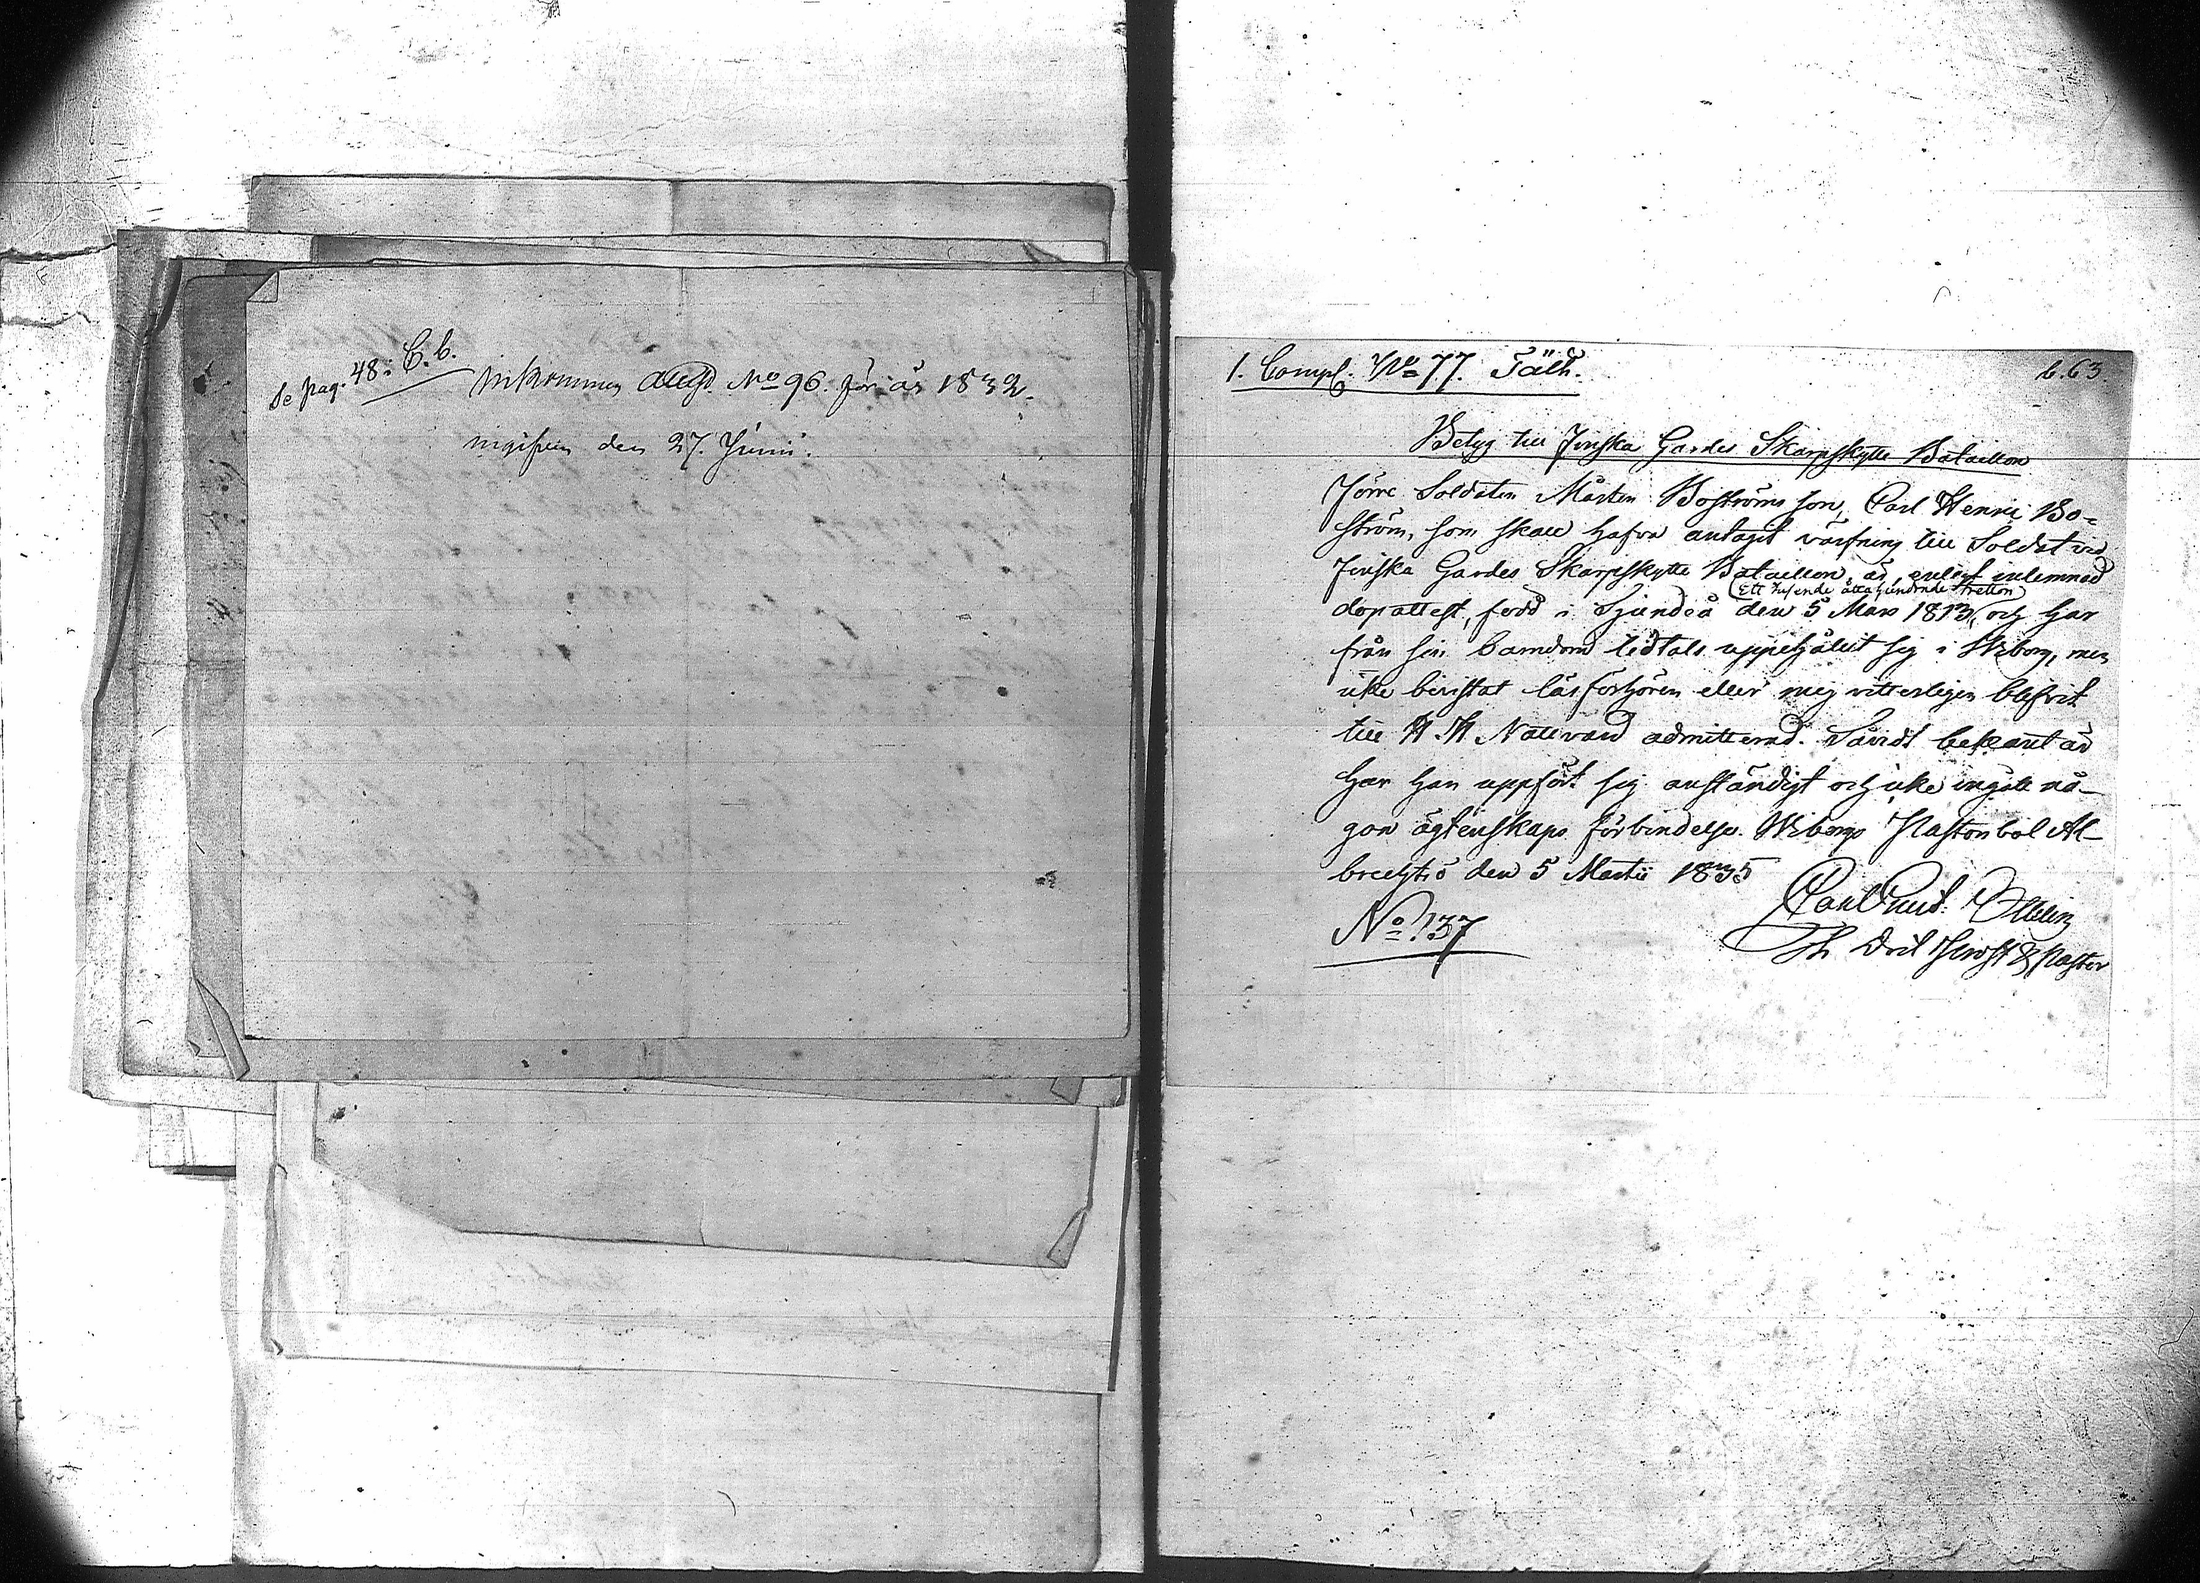 Se pag. 48: C. b.
Inkommen Attest No 96. för år 1832.
ingifven den 27. Junii.
1. Comp. No 77. Fälth.
b. 63
Betyg till Finska Gardes Skarpskytte Bataillon
Förre Soldaten Mårten Boströms son, Carl Henric Bo-
ström, som skall hafva antagit värfning till Soldat vid
Finska Gardes Skarpskytte Bataillon, är, enligt inlemnad
(Ett tusende åtta hundrade tretton)
dopattest, född i Sjundeå den 5 Mars 1813, och har
från sin barndom tidtals uppehållit sig i Wiborg, men
icke bevistat läsförhören eller mig vitterligen blifvit
till H. H. Nattvard admitterad. Såvidt bekant är
har han uppfört sig anständigt och icke ingått nå-
gon ägtenskaps förbindelse. Wiborgs Pastorsbol Al-
brechtsro den 5 Martii 1835
No 137
Th Doct Prost & Pastor